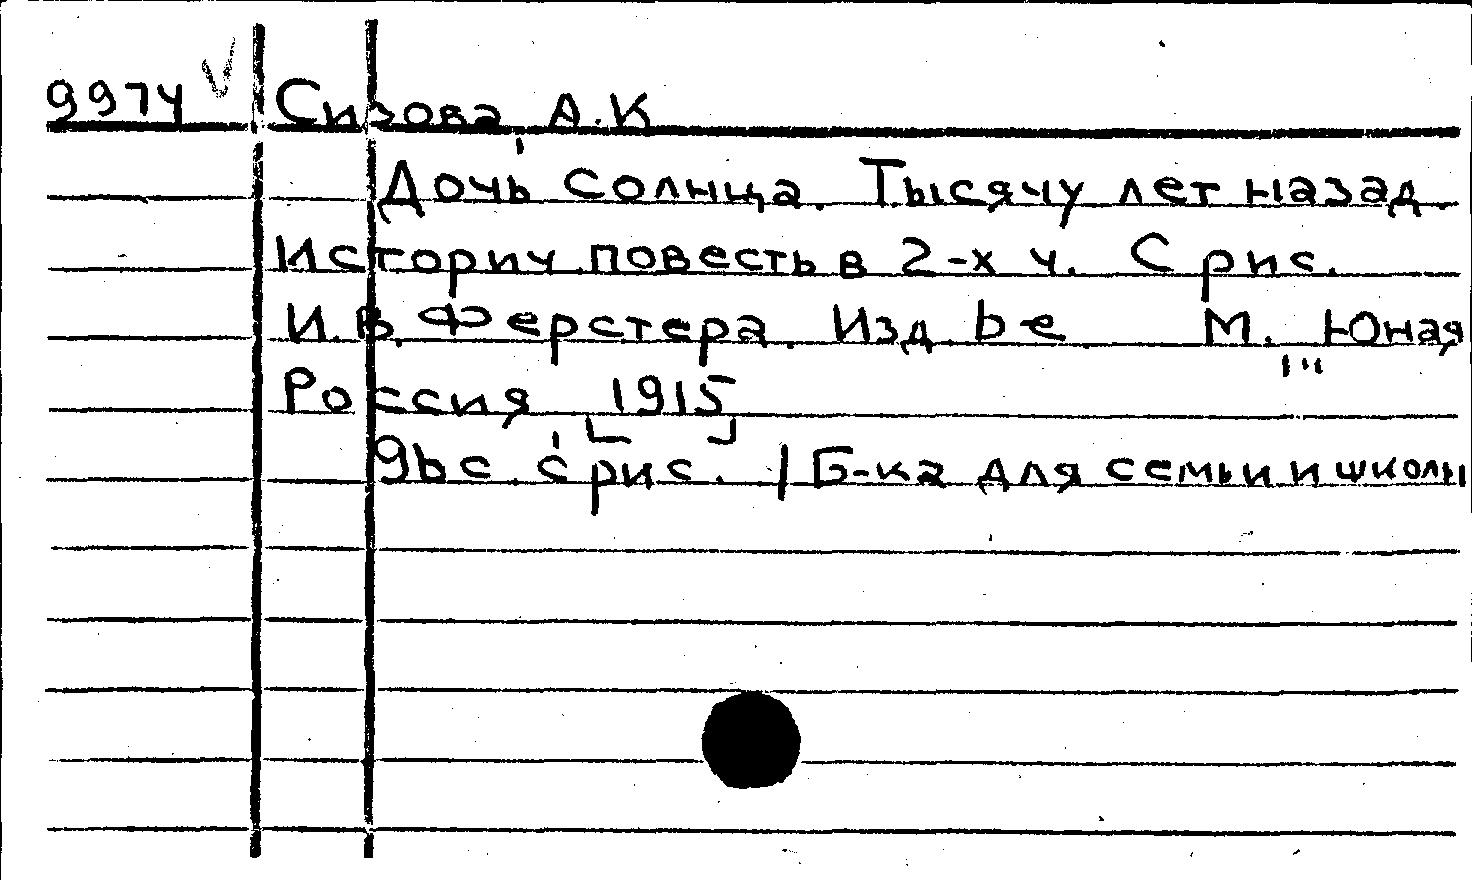 9974 Сизова, А.К
Дочь солнца. Тысячу лет назад.
Историч. повесть в 2-х ч. С рис.
И.В. Ферстера. Изд. 6е М. Юная
Россия, [1915]
96 с. с рис. | Б-ка для семьи и школы